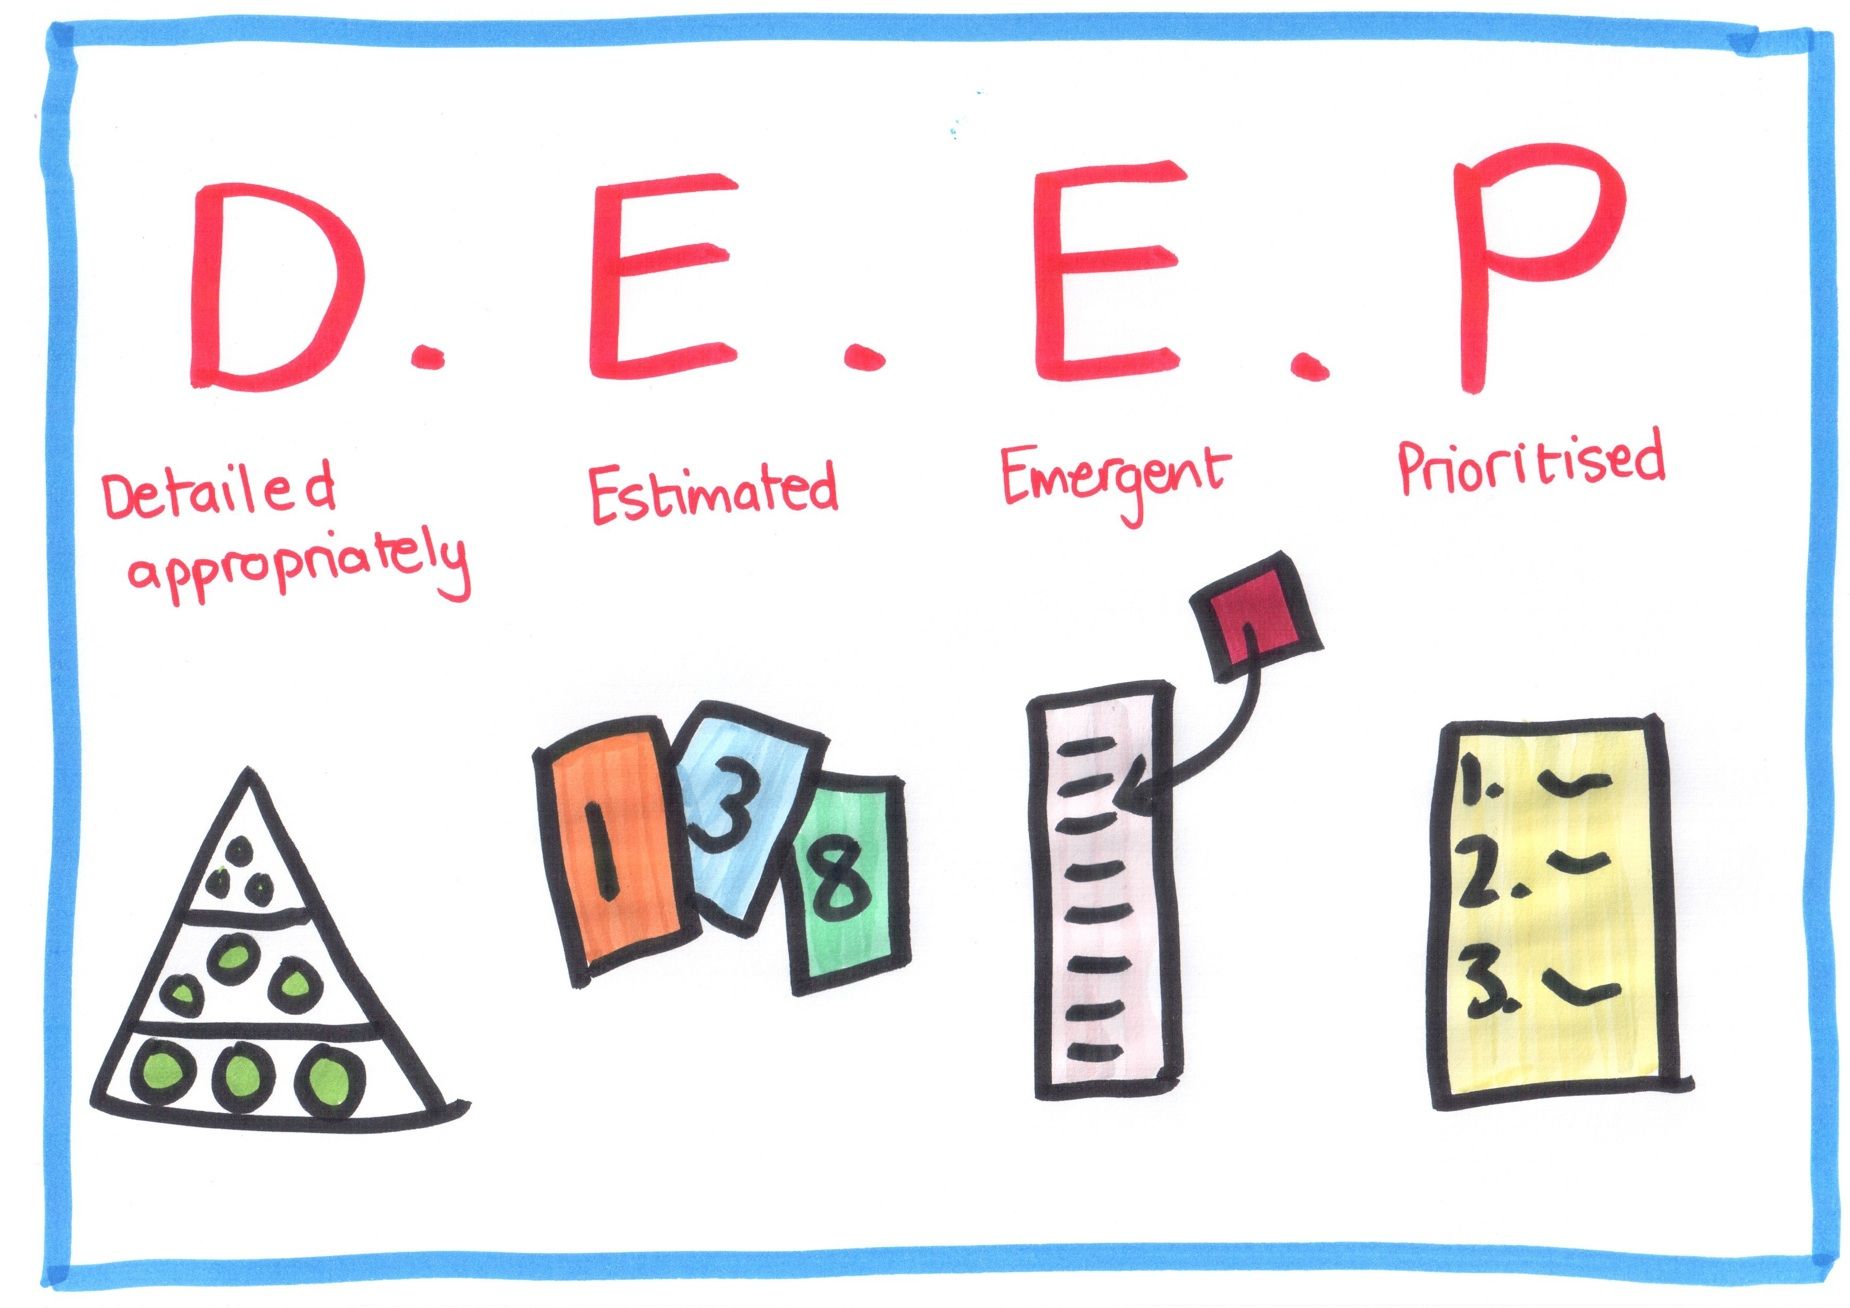 D.E.E.P
Detailed
appropriately
Estimated
Emergent
Prioritised
1 3 8
1.
2.
3.